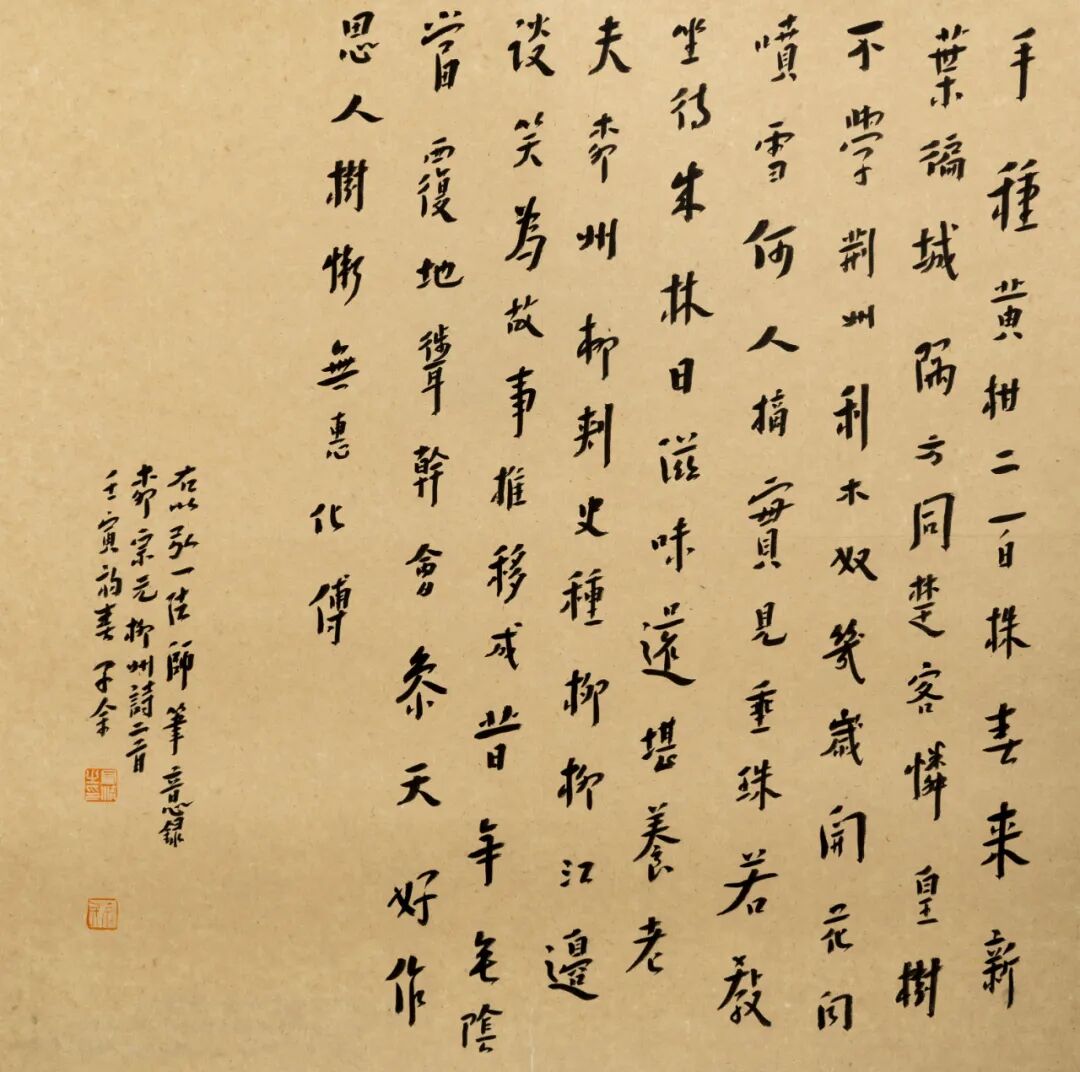 手種黄柑二百株春来新
葉徧城隅方同楚客憐皇樹
不學荆州利木奴幾歲開花聞
噴雪何人摘實見垂珠若教
坐待成林日滋味還堪養老
夫柳州柳刺史種柳柳江邊
談笑為故事推移成昔年垂陰
當覆地聳幹會參天好作
思人樹慚無惠化傳
右以弘一法師筆意録
柳宗元柳州詩二首
壬寅初春子余